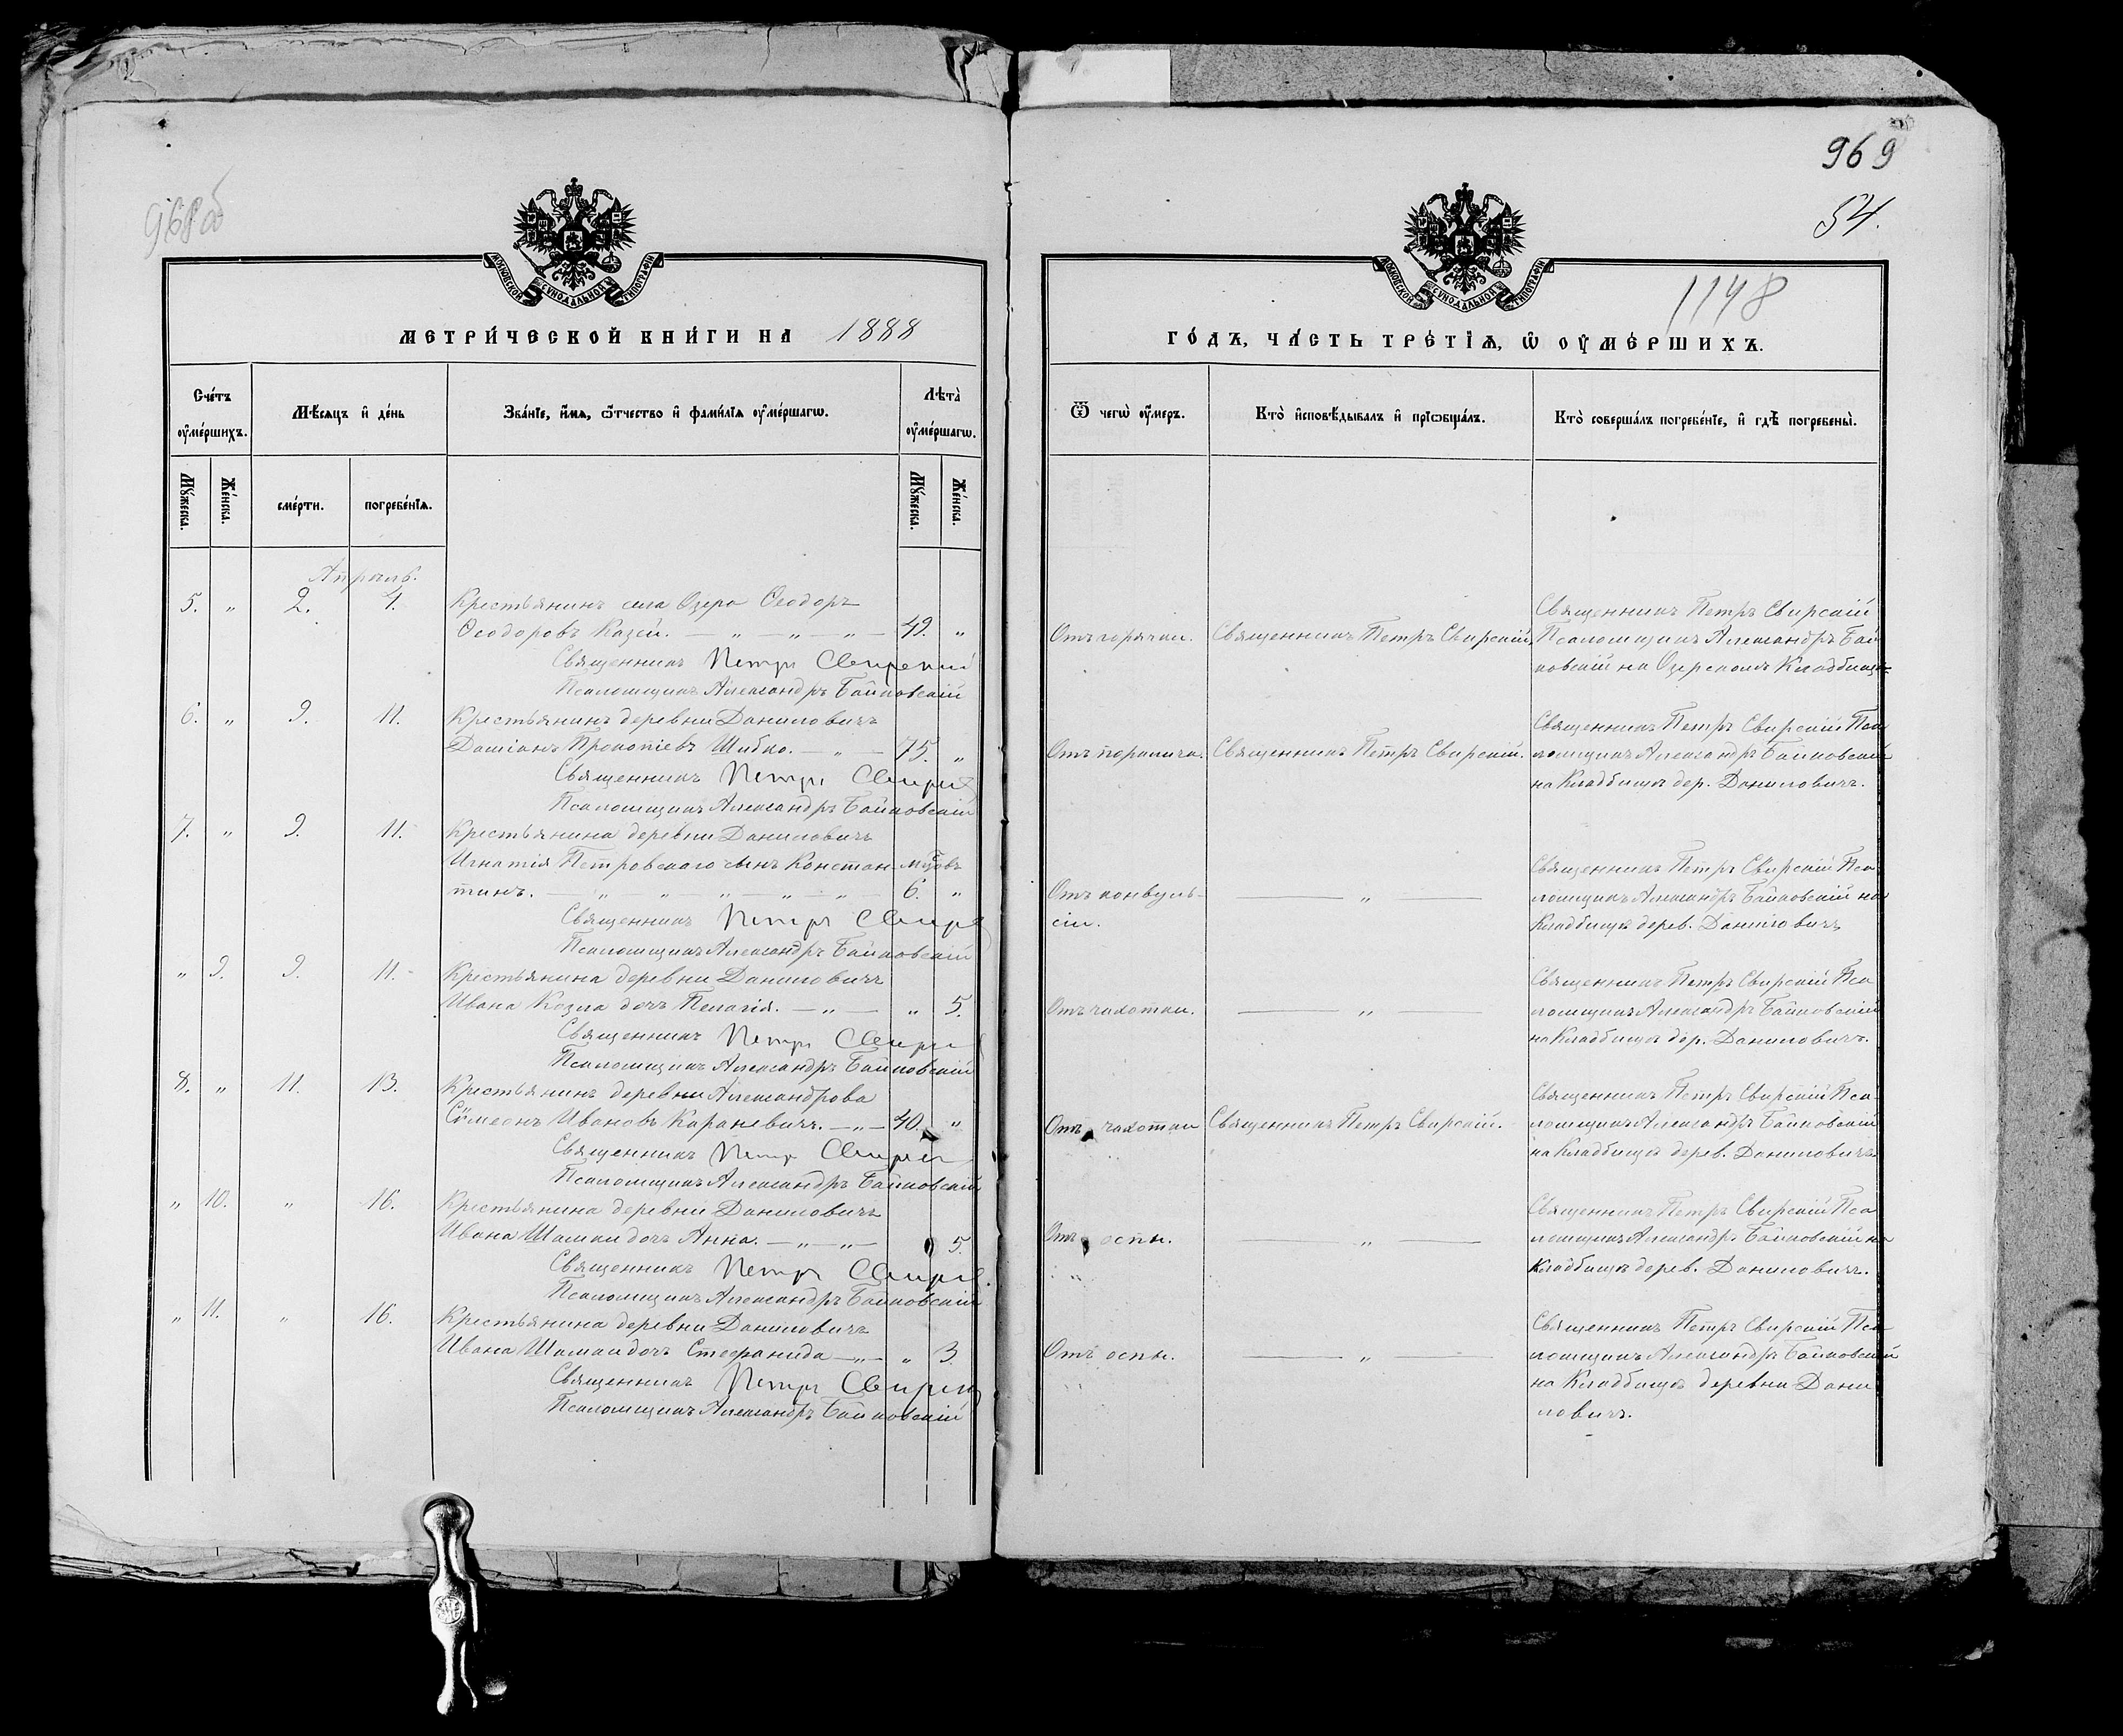 968об
969
54.
1148
МОСКОВСКОЙ СУНОДАЛЬНОЙ ТИПОГРАФІИ
МОСКОВСКОЙ СУНОДАЛЬНОЙ ТИПОГРАФІИ
МЕТРИ́ЧЕСКОЙ КНИ́ГИ НА 1888
ГО́ДЪ, ЧА́СТЬ ТРЕ́ТІѦ, Ѡ ОУ҆МЕ́РШИХЪ.
Сче́тъ оу҆ме́ршихъ.
Мѣ́сяцъ и҆ де́нь
Зва́нїе, и҆́мѧ, ѻ҆́тчество и҆ фами́лїѧ оу҆ме́ршагѡ.
Лѣ̑та̀ оу҆ме́ршагѡ.
Ѿ чегѡ̀ оу҆́меръ.
Кто̀ и҆сповѣ́дывалъ и҆ прїѡбща́лъ.
Кто̀ соверша́лъ погребе́нїе, и҆ гдѣ̀ погребены̀.
Мꙋ́жеска.
Же́нска.
сме́рти.
погребе́нїѧ.
Мꙋ́жеска.
Же́нска.
Апрѣль.
5. „ 2. 4. Крестьянинъ села Озера Ѳеодоръ
Ѳеодоровъ Казей. — „ — „ — „ — 49. „
Священникъ Петръ Свирскій
Псаломщикъ Александръ Байковскій
Отъ горячки. Священникъ Петръ Свирскій.
Священникъ Петръ Свирскій
Псаломщикъ Александръ Бай
ковскій на Озерскомъ Кладбищѣ
6. „ 9. 11. Крестьянинъ деревни Даниловичъ
Даміанъ Прокопіевъ Шибко. — „ — 75. „
Священникъ Петръ Свирскій
Псаломщикъ Александръ Байковскій
Отъ паралича. Священникъ Петръ Свирскій.
Священникъ Петръ Свирскій Пса
ломщикъ Александръ Байковскій
на Кладбищѣ дер. Даниловичъ.
7. „ 9. 11. Крестьянина деревни Даниловичъ
Игнатія Петровскаго сынъ Констан мцовъ
тинъ. — „ — „ — „ — „ — „ 6. „
Священникъ Петръ Свирскій
Псаломщикъ Александръ Байковскій
Отъ конвуль-
сіи. — „ —
Священникъ Петръ Свирскій Пса
ломщикъ Александръ Байковскій на
Кладбищѣ дерев. Даниловичъ
„ 9. 9. 11. Крестьянина деревни Даниловичъ
Ивана Козла дочь Пелагія. — „ — „ 5.
Священникъ Петръ Свирскій
Псаломщикъ Александръ Байковскій
Отъ чахотки. — „ —
Священникъ Петръ Свирскій Пса
ломщикъ Александръ Байковскій
на Кладбищѣ дер. Даниловичъ.
8. „ 11. 13. Крестьянинъ деревни Александрова
Сѷмеонъ Ивановъ Караневичъ. — „ — 40. „
Священникъ Петръ Свирскій
Псаломщикъ Александръ Байковскій
Отъ чахотки Священникъ Петръ Свирскій.
Священникъ Петръ Свирскій Пса
ломщикъ Александръ Байковскій
на Кладбищѣ дерев. Даниловичъ.
„ 10. „ 16. Крестьянина деревни Даниловичъ
Ивана Шамки дочь Анна. — „ — „ — 5.
Священникъ Петръ Свирскій
Псаломщикъ Александръ Байковскій
Отъ оспы. — „ —
Священникъ Петръ Свирскій Пса
ломщикъ Александръ Байковскій на
Кладбищѣ дерев. Даниловичъ.
„ 11. „ 16. Крестьянина деревни Даниловичъ
Ивана Шамки дочь Стефанида — „ — „ 3.
Священникъ Петръ Свирскій
Псаломщикъ Александръ Байковскій
Отъ оспы. — „ —
Священникъ Петръ Свирскій Пса
ломщикъ Александръ Байковскій
на Кладбищѣ деревни Дани
ловичъ.